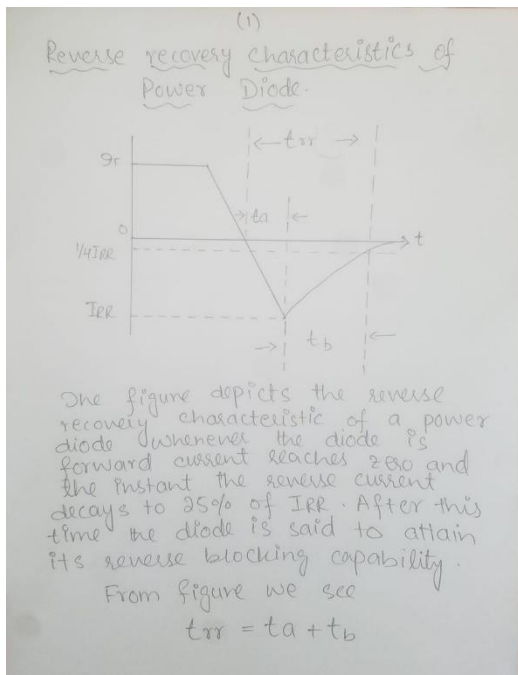 (1)
Reverse recovery characteristics of
Power Diode.
← trr →
If
ta
0
t
1/4 IRR
IRR
tb
The figure depicts the reverse
recovery characteristic of a power
diode whenever the diode is
forward current reaches zero and
the instant the reverse current
decays to 25% of IRR. After this
time the diode is said to attain
its reverse blocking capability.
From figure we see
trr = ta + tb